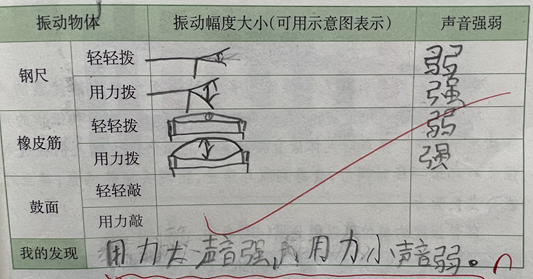 振动物体 振动幅度大小(可用示意图表示) 声音强弱
钢尺 轻轻拨 弱
用力拨 强
橡皮筋 轻轻拨 弱
用力拨 强
鼓面 轻轻敲
用力敲
我的发现 用力大声音强,用力小声音弱。